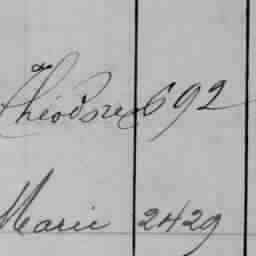 Théodore 692
Marie 2429